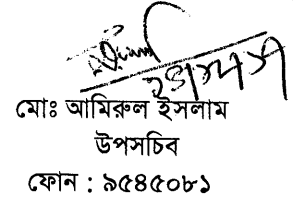 মোঃ আমিরুল ইসলাম
উপসচিব
ফোন : ৯৫৪৫০৮১